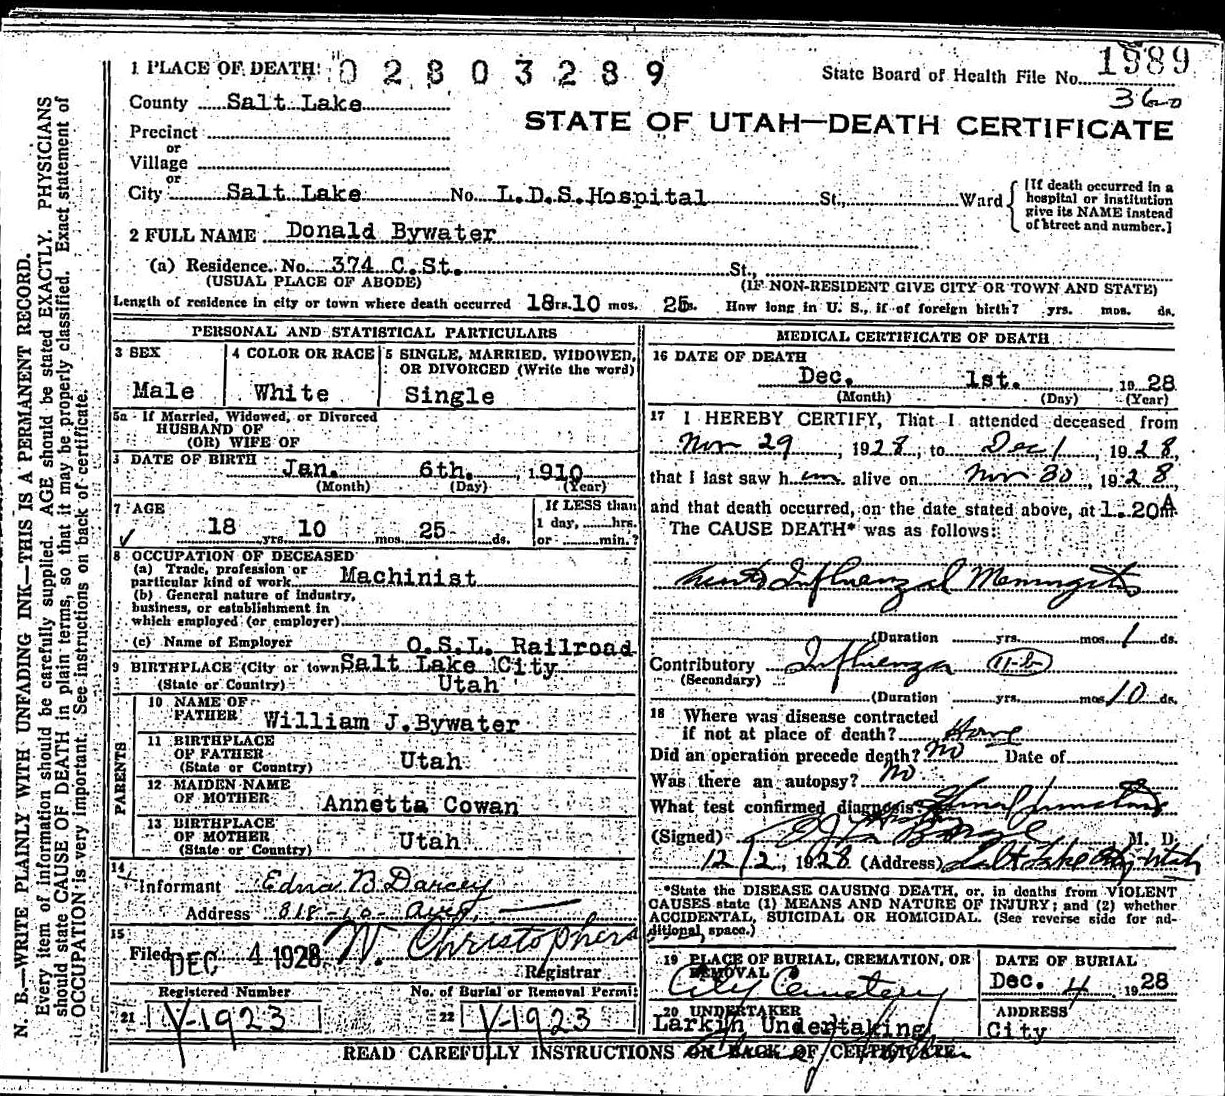 1989
1 PLACE OF DEATH: 02803289 State Board of Health File No.
360
County Salt Lake
STATE OF UTAH—DEATH CERTIFICATE
Precinct
or
Village
or
City Salt Lake No. L.D.S. Hospital St., Ward
[If death occurred in a
hospital or institution
give its NAME instead
of street and number.]
2 FULL NAME Donald Bywater
(a) Residence. No. 374 C.St. St.,
(USUAL PLACE OF ABODE) (IF NON-RESIDENT GIVE CITY OR TOWN AND STATE)
Length of residence in city or town where death occurred 18 rs. 10 mos. 25 s. How long in U. S., if of foreign birth? yrs. mos. ds.
PERSONAL AND STATISTICAL PARTICULARS
3 SEX
Male
4 COLOR OR RACE
White
5 SINGLE, MARRIED, WIDOWED,
OR DIVORCED (Write the word)
Single
5a If Married, Widowed, or Divorced
HUSBAND OF
(OR) WIFE OF
DATE OF BIRTH Jan. 6th. 1910
(Month) (Day) (Year)
7 AGE
18 yrs. 10 mos. 25 ds.
If LESS than
1 day, hrs.
or min.?
8 OCCUPATION OF DECEASED
(a) Trade, profession or
particular kind of work Machinist
(b) General nature of industry,
business, or establishment in
which employed (or employer)
(c) Name of Employer O.S.L. Railroad
9 BIRTHPLACE (City or town) Salt Lake City
(State or Country) Utah
PARENTS
10 NAME OF
FATHER William J. Bywater
11 BIRTHPLACE
OF FATHER
(State or Country) Utah
12 MAIDEN NAME
OF MOTHER Annetta Cowan
13 BIRTHPLACE
OF MOTHER
(State or Country) Utah
14
Informant Edna B Darcey
Address 818-10 ave.
15
Filed DEC 4 1928 W. Christophers
Registrar
Registered Number No. of Burial or Removal Permit
21 V-1923 22 V-1923
MEDICAL CERTIFICATE OF DEATH
16 DATE OF DEATH
Dec. 1st. 1928
(Month) (Day) (Year)
17 I HEREBY CERTIFY, That I attended deceased from
Nov 29, 1928, to Dec 1, 1928,
that I last saw him alive on Nov 30, 1928,
and that death occurred, on the date stated above, at 1.20 A m.
The CAUSE DEATH* was as follows:
Influenzal Meningitis
(Duration yrs. mos. 1 ds.
Contributory Influenza 11-b
(Secondary)
(Duration yrs. mos. 10 ds.
18 Where was disease contracted
if not at place of death? Home
Did an operation precede death? No Date of
Was there an autopsy? No
What test confirmed diagnosis?
(Signed) M. D.
12/2, 1928 (Address) Salt Lake City Utah
*State the DISEASE CAUSING DEATH, or, in deaths from VIOLENT
CAUSES state (1) MEANS AND NATURE OF INJURY; and (2) whether
ACCIDENTAL, SUICIDAL OR HOMICIDAL. (See reverse side for ad-
ditional space.)
19 PLACE OF BURIAL, CREMATION, OR
REMOVAL
City Cemetery
DATE OF BURIAL
Dec. 4 1928
20 UNDERTAKER
Larkin Undertaking
ADDRESS
City
READ CAREFULLY INSTRUCTIONS ON BACK OF CERTIFICATE
N. B.—WRITE PLAINLY WITH UNFADING INK—THIS IS A PERMANENT RECORD.
Every item of information should be carefully supplied. AGE should be stated EXACTLY. PHYSICIANS
should state CAUSE OF DEATH in plain terms, so that it may be properly classified. Exact statement of
OCCUPATION is very important. See instructions on back of certificate.